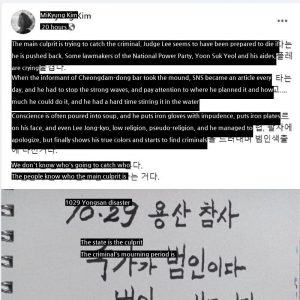 MiKyung Kim Kim
20 hours
The main culprit is trying to catch the criminal, Judge Lee seems to have been prepared to die if
he is pushed back, Some lawmakers of the National Power Party, Yoon Suk Yeol and his aides,
are crying
When the informant of Cheongdam-dong bar took the mound, SNS became an article every 타는
day, and he had to stop the waves, and pay attention to where he planned it and how
much he could do it, and he had a hard time stirring it in the water
Conscience is often poured into soup, and he puts iron gloves with impudence, puts iron plates
on his face, and even Lee Jong-kyo, low religion, pseudo-religion, and he managed to
apologize, but finally shows his true colors and starts to find criminals
We don't know who's going to catch who 다.
The people know who the main culprit is 는 거다.
1029 Yongsan disaster
10.29 용산 참사
The state is the culprit
The criminal's mourning period is
국가가 범인이다